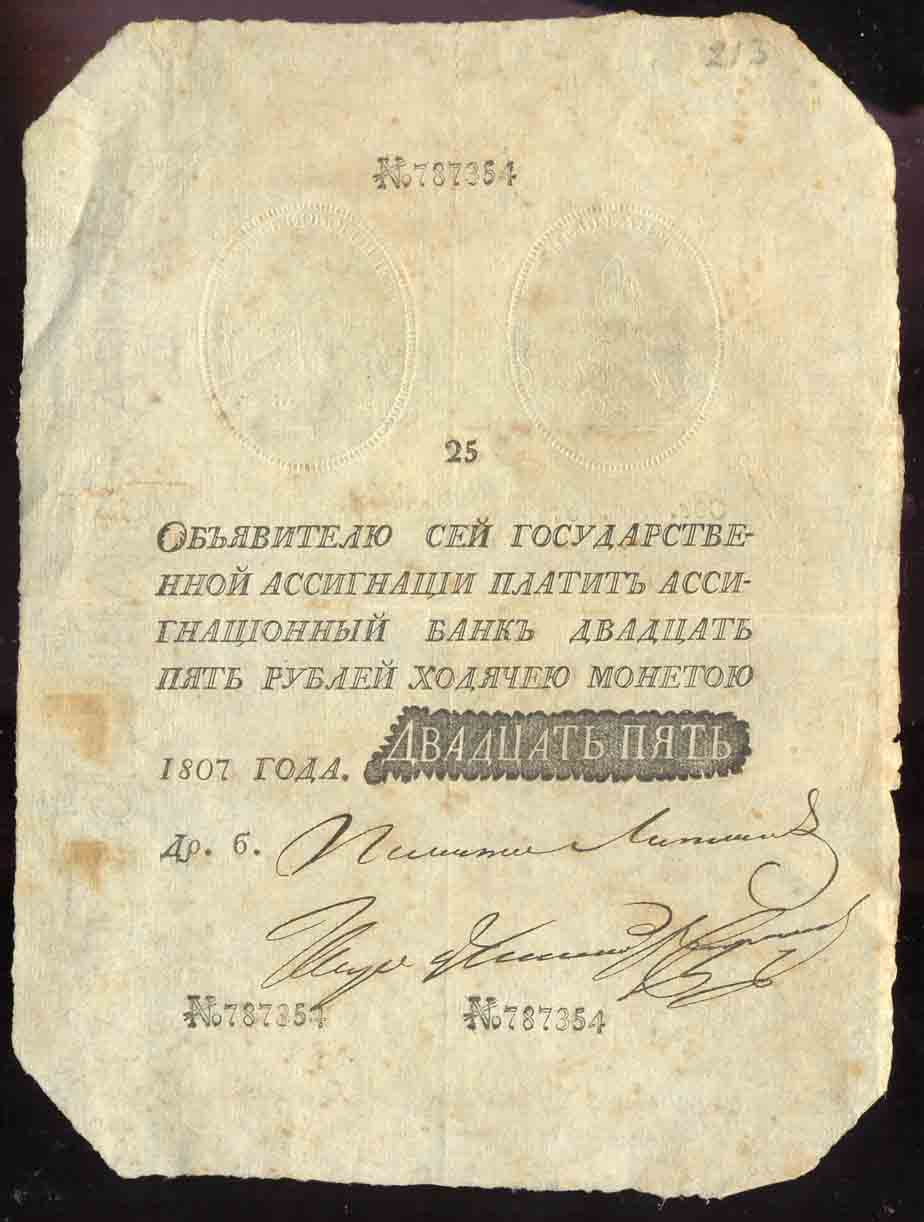 213
№787354
25
ОБЪЯВИТЕЛЮ СЕЙ ГОСУДАРСТВЕ-
ННОЙ АССИГНАЦІИ ПЛАТИТЪ АССИ-
ГНАЦІОННЫЙ БАНКЪ ДВАДЦАТЬ
ПЯТЬ РУБЛЕЙ ХОДЯЧЕЮ МОНЕТОЮ
1807 ГОДА. ДВАДЦАТЬ ПЯТЬ
Др. б.
№787354 №787354